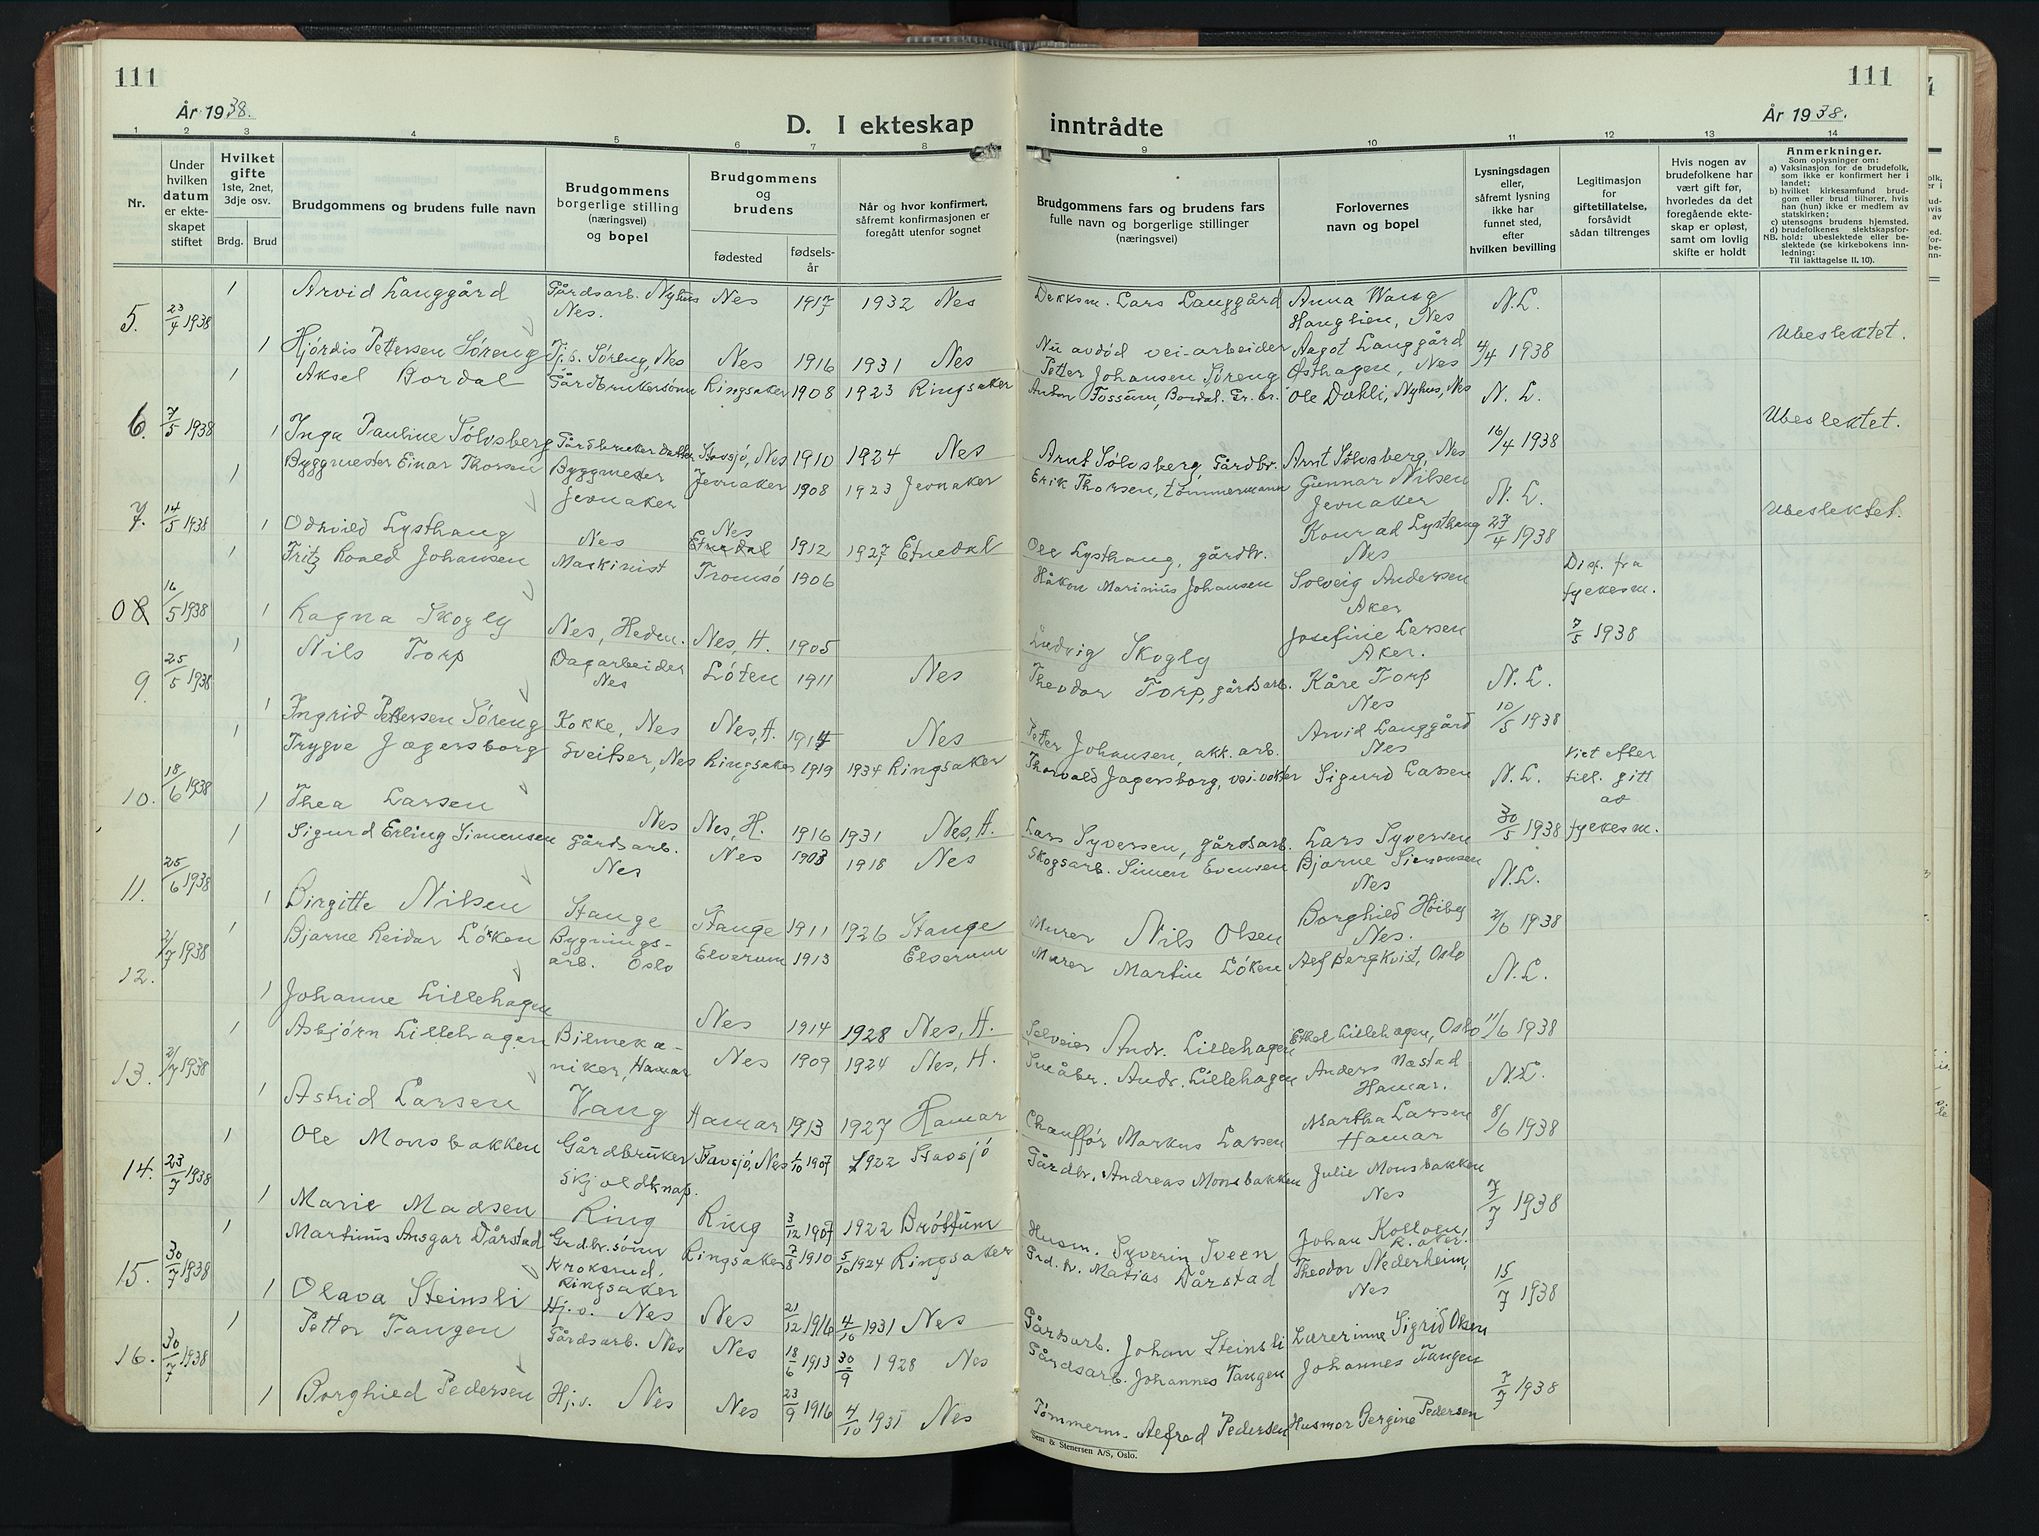 111
111
År 1938.
År 1938.
D. I ekteskap inntrådte
1 2 3 4 5 6 7 8 9 10 11 12 13 14
Nr.
Under hvilken datum er ekteskapet stiftet
Hvilket gifte 1ste, 2net, 3dje osv.
Brdg. Brud
Brudgommens og brudens fulle navn
Brudgommens borgerlige stilling (næringsvei) og bopel
Brudgommens og brudens
fødested
fødselsår
Når og hvor konfirmert, såfremt konfirmasjonen er foregått utenfor sognet
Brudgommens fars og brudens fars fulle navn og borgerlige stillinger (næringsvei)
Forlovernes navn og bopel
Lysningsdagen eller, såfremt lysning ikke har funnet sted, efter hvilken bevilling
Legitimasjon for giftetillatelse, forsåvidt sådan tiltrenges
Hvis nogen av brudefolkene har vært gift før, hvorledes da det foregående ekteskap er opløst, samt om lovlig skifte er holdt
Anmerkninger.
Som oplysninger om:
a) Vaksinasjon for de brudefolk, som ikke er konfirmert her i landet;
b) hvilket kirkesamfund brudgom eller brud tilhører, hvis han (hun) ikke er medlem av statskirken;
c) utensogns brudens hjemsted.
d) brudefolkenes slektskapsforhold: ubeslektede eller beslektede (se kirkebokens innledning:
NB.
Til iakttagelse II. 10).
5. 23/4 1938 1 Arvid Langgård Gårdsarb. Nyhus Nes. Nes 1917 1932 Nes Dekksm. Lars Langgård Anna Wang Hanglien, Nes N.L.
1 Hjördis Pettersen Söreng Tj. s. Söreng, Nes Nes 1916 1931 Nes Nu avdød vei-arbeider Petter Johansen Söreng Aagot Langgård Østhagen, Nes 4/4 1938 Ubeslektet.
6. 7/5 1938 1 Aksel Bordal Gårdbrukersønn Ringsaker 1908 1923 Ringsaker Anton Fossum, Bordal. Gr. br. Ole Dæhli, Nyhus, Nes N. L.
1 Inga Pauline Sølvsberg Gårdbruker datter Stavsjø, Nes 1910 1924 Nes Arnt Sølvsberg, Gårdbr. Arnt Sølvsberg, Nes 16/4 1938 Ubeslektet.
7. 14/5 1938 1 Byggmester Einar Thorsen Byggmester Jevnaker Jevnaker 1908 1923 Jevnaker Erik Thorsen, tømmermann Gunnar Nilsen Jevnaker N. L.
1 Odrvild Lysthaug Nes Nes Etnedal 1912 1927 Etnedal Ole Lysthaug, gårdbr. Konrad Lysthaug Nes 27/4 1938 Ubeslektet.
08 16/5 1938 1 Fritz Roald Johansen Maskinist Tromsö 1906 Håkon Marinius Johansen Solveig Andersen Aker Disp. fra fylkesm.
1 Ragna Skogly Nes, Hedm. Nes, H. 1905 Ludvig Skogly Josefine Larsen Aker. 7/5 1938
9 25/5 1938 1 Nils Torp Dagarbeider Nes Löten 1911 Nes Theodor Torp, gårdsarb. Kåre Torp Nes N. L.
1 Ingrid Pettersen Söreng Kokke, Nes Nes, H. 1914 Nes Petter Johansen, akk. arb. Arvid Langgård Nes 10/5 1938
10. 18/6 1938 1 Trygve Jagersborg Sveitser, Nes Ringsaker 1919 1934 Ringsaker Thorvald Jagersborg, vei-vokter Sigurd Larsen N. L. Viet efter till. gitt av fylkesm.
1 Thea Larsen Nes Nes, H. 1916 1931 Nes, H. Lars Syversen, gårdsarb. Lars Syversen 30/5 1938
11. 25/6 1938 1 Sigurd Erling Simensen Gårdsarb. Nes Nes 1903 1918 Nes Skogsarb. Simen Evensen Bjarne Simensen Nes N.L.
1 Birgitte Nilsen Stange Stange 1911 1926 Stange Murer Nils Olsen Borghild Høiby Nes. 2/6 1938
12. 2/7 1938 1 Bjarne Reidar Löken Bygningsarb. Oslo Elverum 1913 Elverum Murer Martin Löken Alf Bergkvist, Oslo N.L.
1 Johanne Lillehagen Nes 1914 1928 Nes, H. Selveier Andr. Lillehagen Ethel Lillehagen, Oslo 11/6 1938
13. 2/7 1938 1 Asbjörn Lillehagen Bilmekaniker, Hamar Nes 1909 1924 Nes, H. Småbr. Andr. Lillehagen Anders Næstad Hamar. N.L.
1 Astrid Larsen Vang Hamar 1913 1927 Hamar Chauffør Markus Larsen Martha Larsen Hamar 8/6 1938
14. 23/7 1938 1 Ole Monsbakken Gårdbruker Skjoldknap. Stavsjö, Nes 1/10 1907 1922 Stavsjö Gårdbr. Andreas Monsbakken Julie Monsbakken Nes
1 Marie Madsen Ring Ring 3/12 1907 1922 Bröttum Husm. Syverin Sveen Johan Kolloen, R.aker. 7/7 1938
15. 30/7 1938 1 Martinus Ansgar Dårstad Grd.br.sönn Kroksrud, Ringsaker Ringsaker 7/8 1910 5/10 1924 Ringsaker Grd. br. Matias Dårstad Theodor Nederheim, Nes
1 Olava Steinsli Hj. v. Nes Nes 21/12 1916 4/10 1931 Nes Gårdsarb. Johan Steinsli Lærerinne Sigrid Olsen 15/7 1938
16. 30/7 1938 1 Petter Tangen Gårdsarb. Nes Nes 18/6 1913 30/9 1928 Nes Gårdsarb. Johannes Tangen Johannes Tangen
1 Borghild Pedersen Hj. v. Nes Nes 23/9 1916 4/10 1931 Nes Tömmerm. Alfred Pedersen Husmor Bergine Pedersen 7/7 1938
Sem & Stenersen A/S, Oslo.